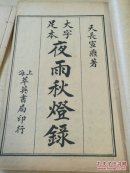 天長宣鼎著
大字
足本
夜雨秋燈錄
上海
萃英書局印行